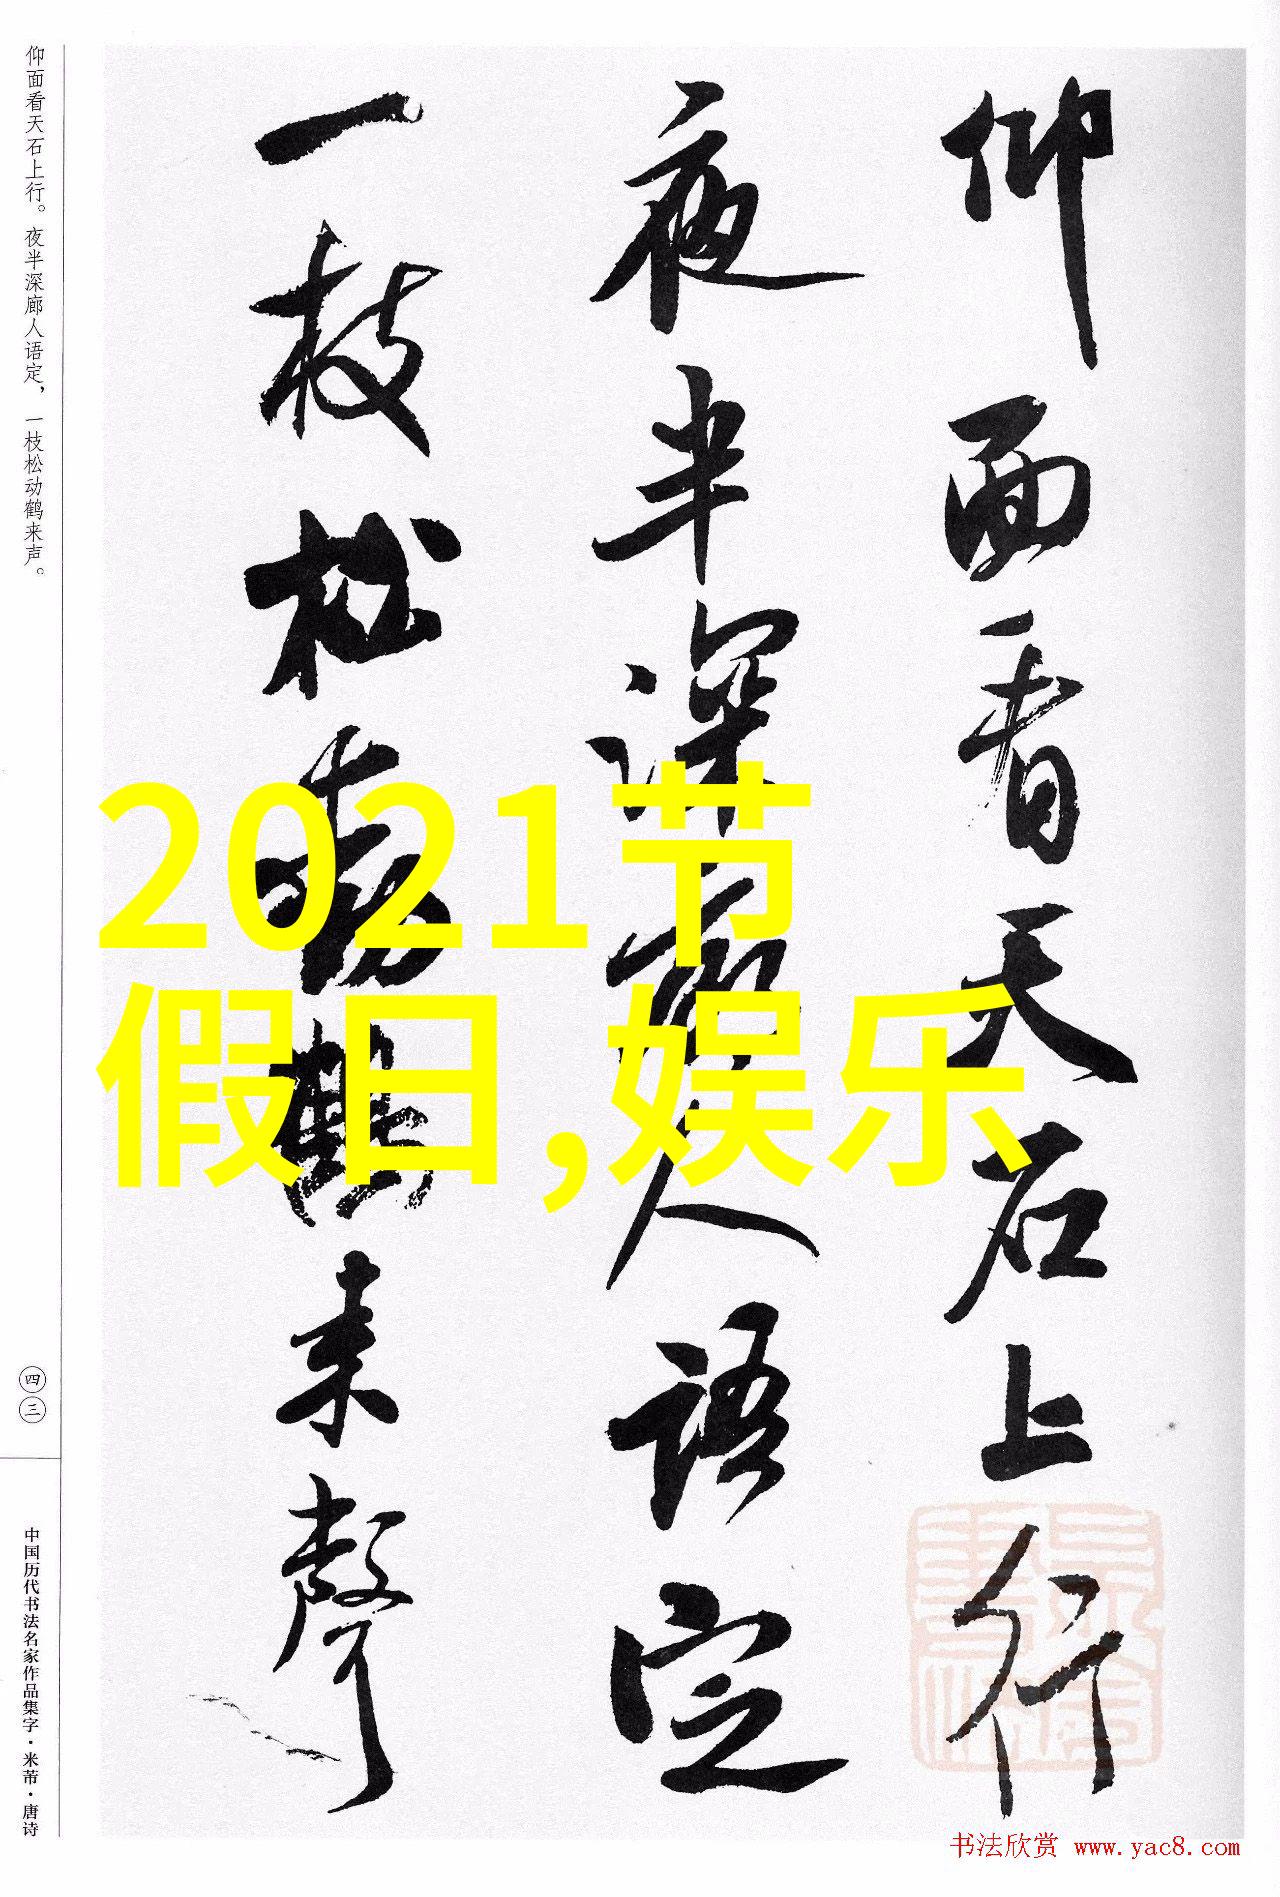 仰面看天石上行
夜半深廊人语定
一枝松動鶴来聲
仰面看天石上行。夜半深廊人语定，一枝松动鹤来声。
四三
中国历代书法名家作品集字·米芾·唐诗
2021节
假日,娱乐
书法欣赏 www.yac8.com